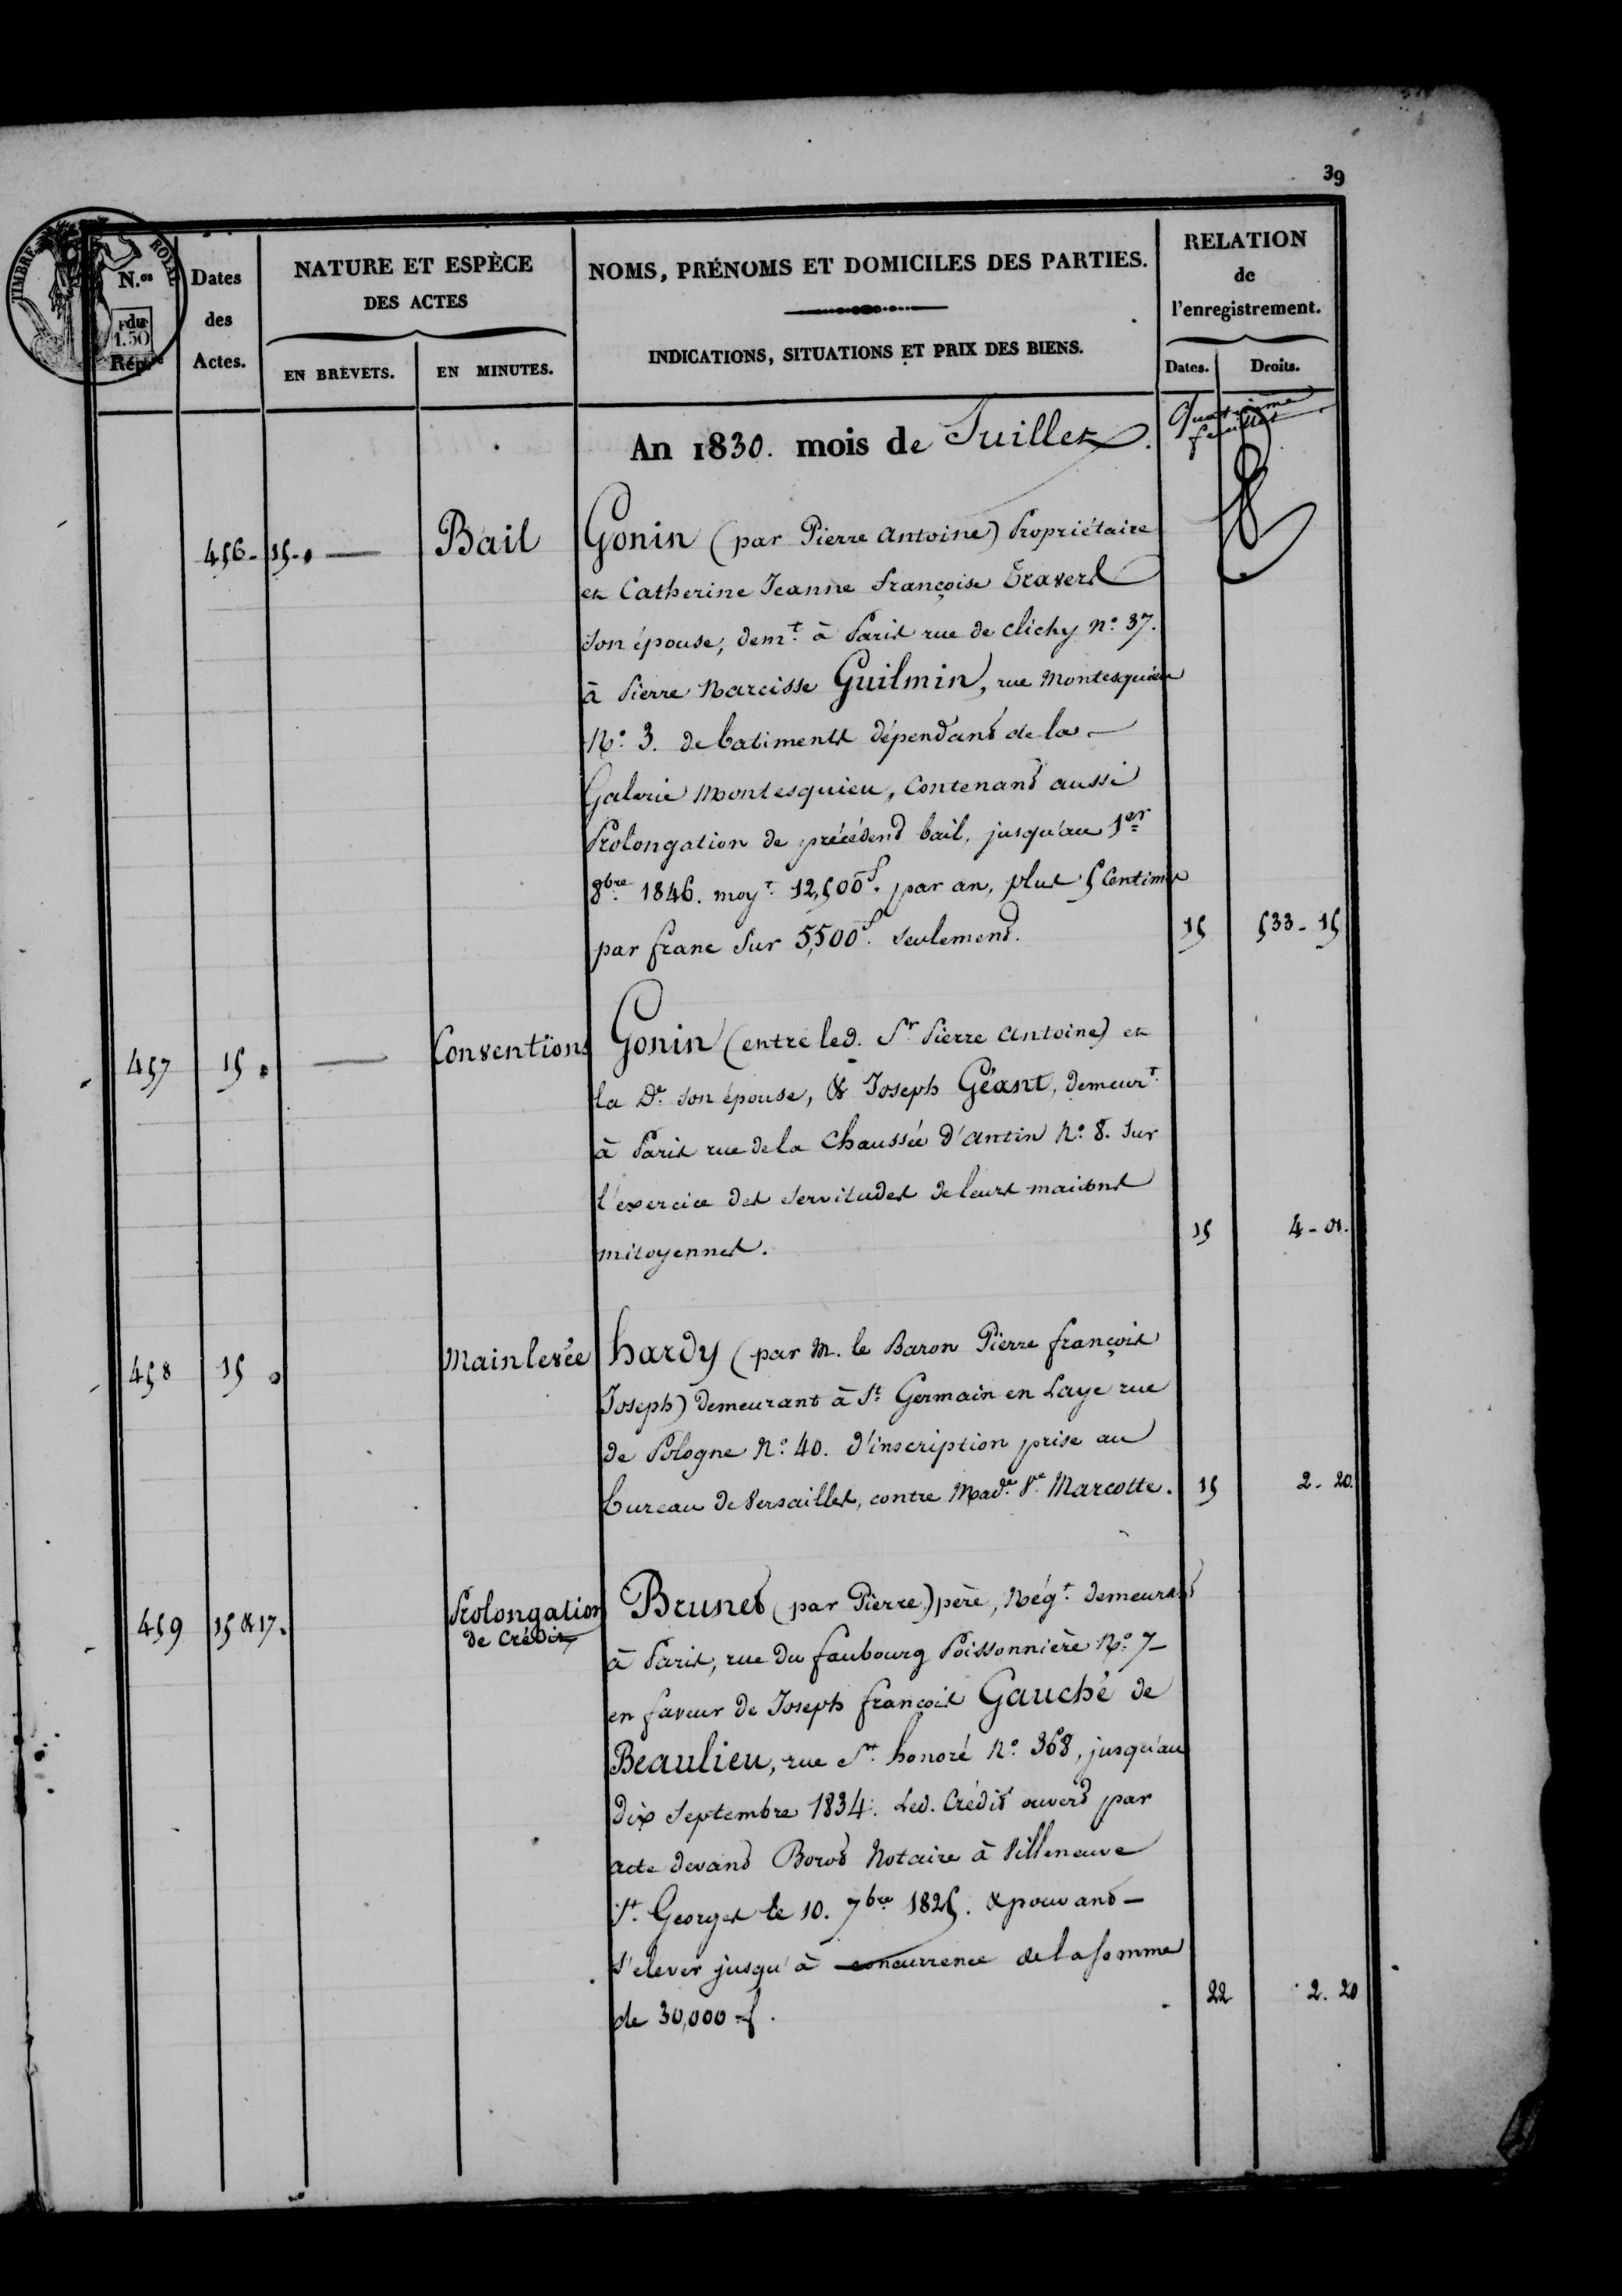 39
TIMBRE ROYAL
N.os du Rép.re
1.50
Dates des Actes.
NATURE ET ESPÈCE DES ACTES
EN BREVETS.
EN MINUTES.
NOMS, PRÉNOMS ET DOMICILES DES PARTIES.
INDICATIONS, SITUATIONS ET PRIX DES BIENS.
RELATION de l'enregistrement.
Dates.
Droits.
An 1830. mois de Juillet.
Quatrième feuillet
456 - 15 - Bail
Gonin (par Pierre Antoine) Propriétaire
et Catherine Jeanne Françoise Travers
son épouse, demt. à Paris rue de Clichy No. 37.
à Pierre Narcisse Guilmin, rue Montesquieu
No. 3. de batiments dépendant de la
Galerie Montesquieu, Contenant aussi
Prolongation de précédent bail, jusqu'au 1er
8bre 1846. moyt. 12,500f. par an, plus 5 Centimes
par franc sur 5,500f. seulement. 15 533 - 15
457 15. Conventions
Gonin (entre led. Sr Pierre Antoine) et
la De. son épouse, & Joseph Géant, demeurt.
à Paris rue de la Chaussée d'Antin No. 8. sur
l'exercice des servitudes de leurs maisons
mitoyennes. 15 4 - 01.
458 15. Mainlevée
hardy (par M. le Baron Pierre françois
Joseph) demeurant à St. Germain en Laye rue
de Pologne No. 40. d'inscription prise au
bureau de Versailles, contre Made. Ve. Marcotte. 15 2 - 20.
459 15 & 17. Prolongation
de Crédit
Brunet (par Pierre) père, Négt. demeurant
à Paris, rue du faubourg Poissonnière No. 7
en faveur de Joseph françois Gauché de
Beaulieu, rue St. honoré No. 368, jusqu'au
dix Septembre 1834. Led. Crédit ouvert par
acte devant Notaire à Villeneuve
St. Georges le 10. 7bre 1825. & pouvant
s'elever jusqu'à concurrence de la somme
de 30,000 f. 22 2. 20